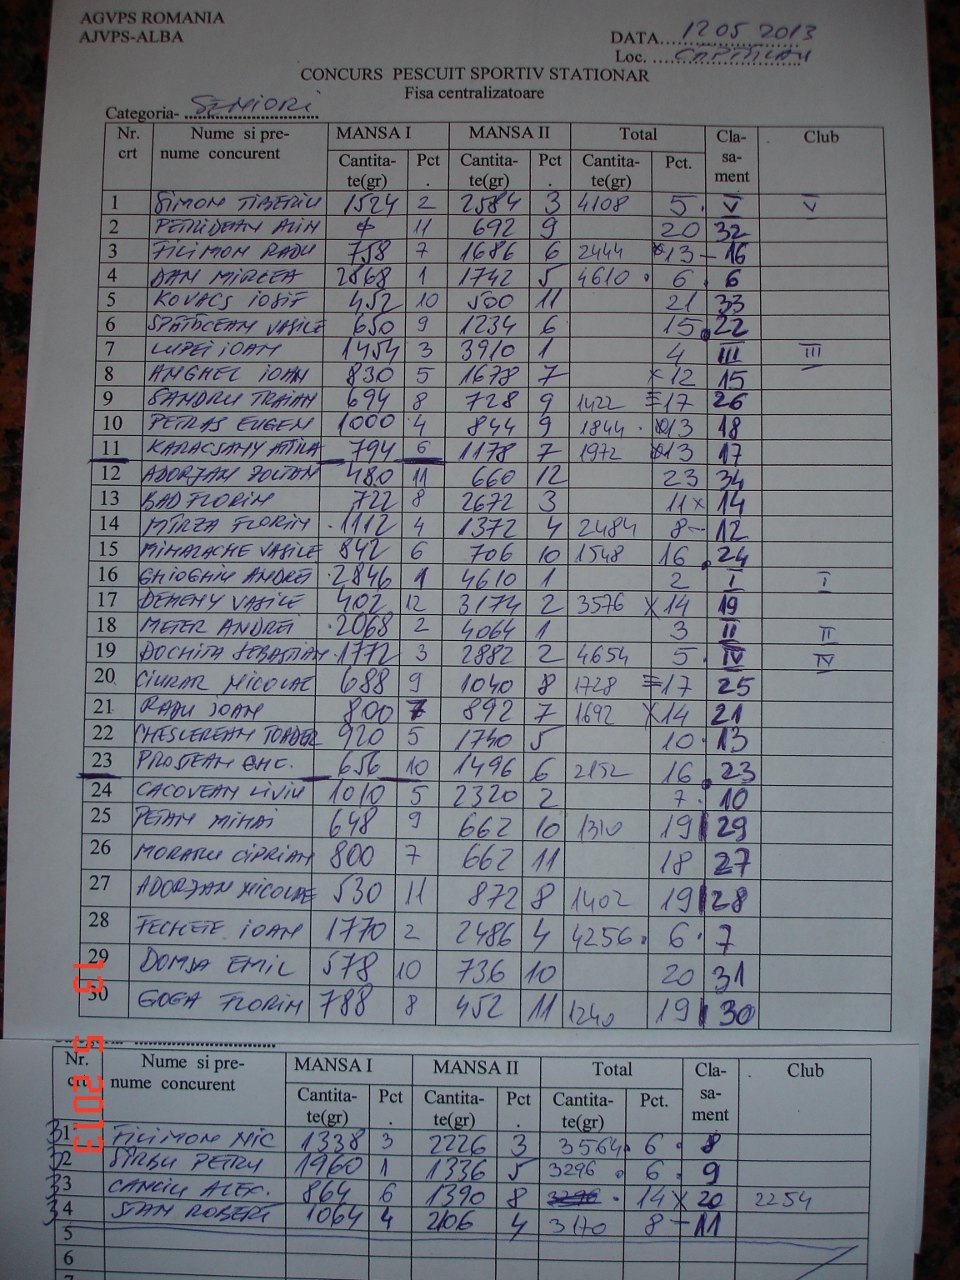 AGVPS ROMANIA
AJVPS-ALBA
DATA 12 05 2013
Loc.
CONCURS PESCUIT SPORTIV STATIONAR
Fisa centralizatoare
Categoria- SENIORI
Nr. crt Nume si pre-nume concurent MANSA I MANSA II Total Cla-sa-ment Club
Cantita-te(gr) Pct. Cantita-te(gr) Pct. Cantita-te(gr) Pct.
1 SIMON TIBERIU 1524 2 2584 3 4108 5. V V
2 PETRIDEAN ALIN φ 11 692 9 20 32
3 FILIMON RADU 758 7 1686 6 2444 x13 - 16
4 DAN MIRCEA 2868 1 1742 5 4610 . 6 . 6
5 KOVACS IOSIF 452 10 500 11 21 33
6 VASILE 650 9 1234 6 15 . 22
7 LUPEI IOAN 1454 3 3910 1 4 III III
8 ANGHEL IOAN 830 5 1678 7 x12 15
9 SANDRU TRAIAN 694 8 728 9 1422 ≡17 26
10 PETRAS EUGEN 1000 4 844 9 1844 . 13 18
11 KARACSANY ATILA 794 6 1178 7 1972 13 17
12 ADORJAN ZOLTAN 480 11 660 12 23 34
13 BAD FLORIN 722 8 2672 3 11 x 14
14 MIRZA FLORIN .1112 4 1372 4 2484 8 - 12
15 MIHALACHE VASILE 842 6 706 10 1548 16 . 24
16 GHIOGHIU ANDREI .2846 1 4610 1 2 I I
17 DEMENY VASILE 402 12 3174 2 3576 x14 19
18 METER ANDREI .2068 2 4064 1 3 II II
19 DOCHITA SEBASTIAN .1772 3 2882 2 4654 5 . IV IV
20 CIURAR NICOLAE 688 9 1040 8 1728 ≡17 25
21 RADU IOAN 800 7 892 7 1692 x14 21
22 CHESLEREAN TOADER 920 5 1740 5 10 . 13
23 PROSTEAN GHE. 656 10 1496 6 2152 16 . 23
24 CACOVEAN LIVIU 1010 5 2320 2 7 . 10
25 PETAN MIHAI 648 9 662 10 1310 19 29
26 MORARU CIPRIAN 800 7 662 11 18 27
27 ADORJAN NICOLAE 530 11 872 8 1402 19 28
28 FECHETE IOAN 1770 2 2486 4 4256 . 6 . 7
29 DOMSA EMIL 578 10 736 10 20 31
30 GOGA FLORIN 788 8 452 11 1240 19 30
13 5 2013
Nr. crt Nume si pre-nume concurent MANSA I MANSA II Total Cla-sa-ment Club
Cantita-te(gr) Pct. Cantita-te(gr) Pct. Cantita-te(gr) Pct.
31 FILIMON NIC 1338 3 2226 3 3564 . 6 . 8
32 SIRBU PETRU 1960 1 1336 5 3296 . 6 . 9
33 CANCIU ALEX. 864 6 1390 8 3296 . 14 x 20 2254
34 STAN ROBERT 1064 4 2106 4 3170 8 - 11
5
6
7